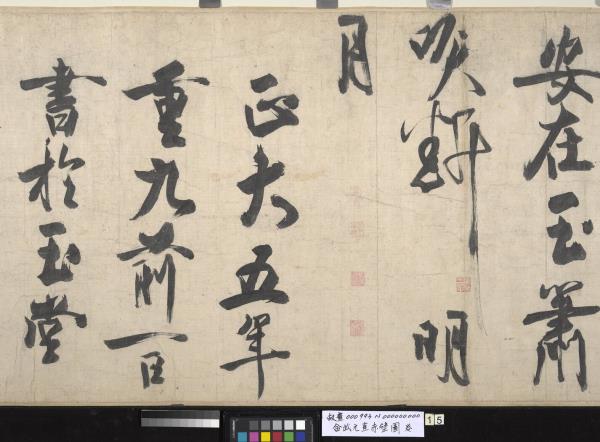 安在玉簫
吹斷明
月
正大五年
重九前一日
書於玉堂
故畫 000994 N 000000000
金武元直赤壁圖 卷
15